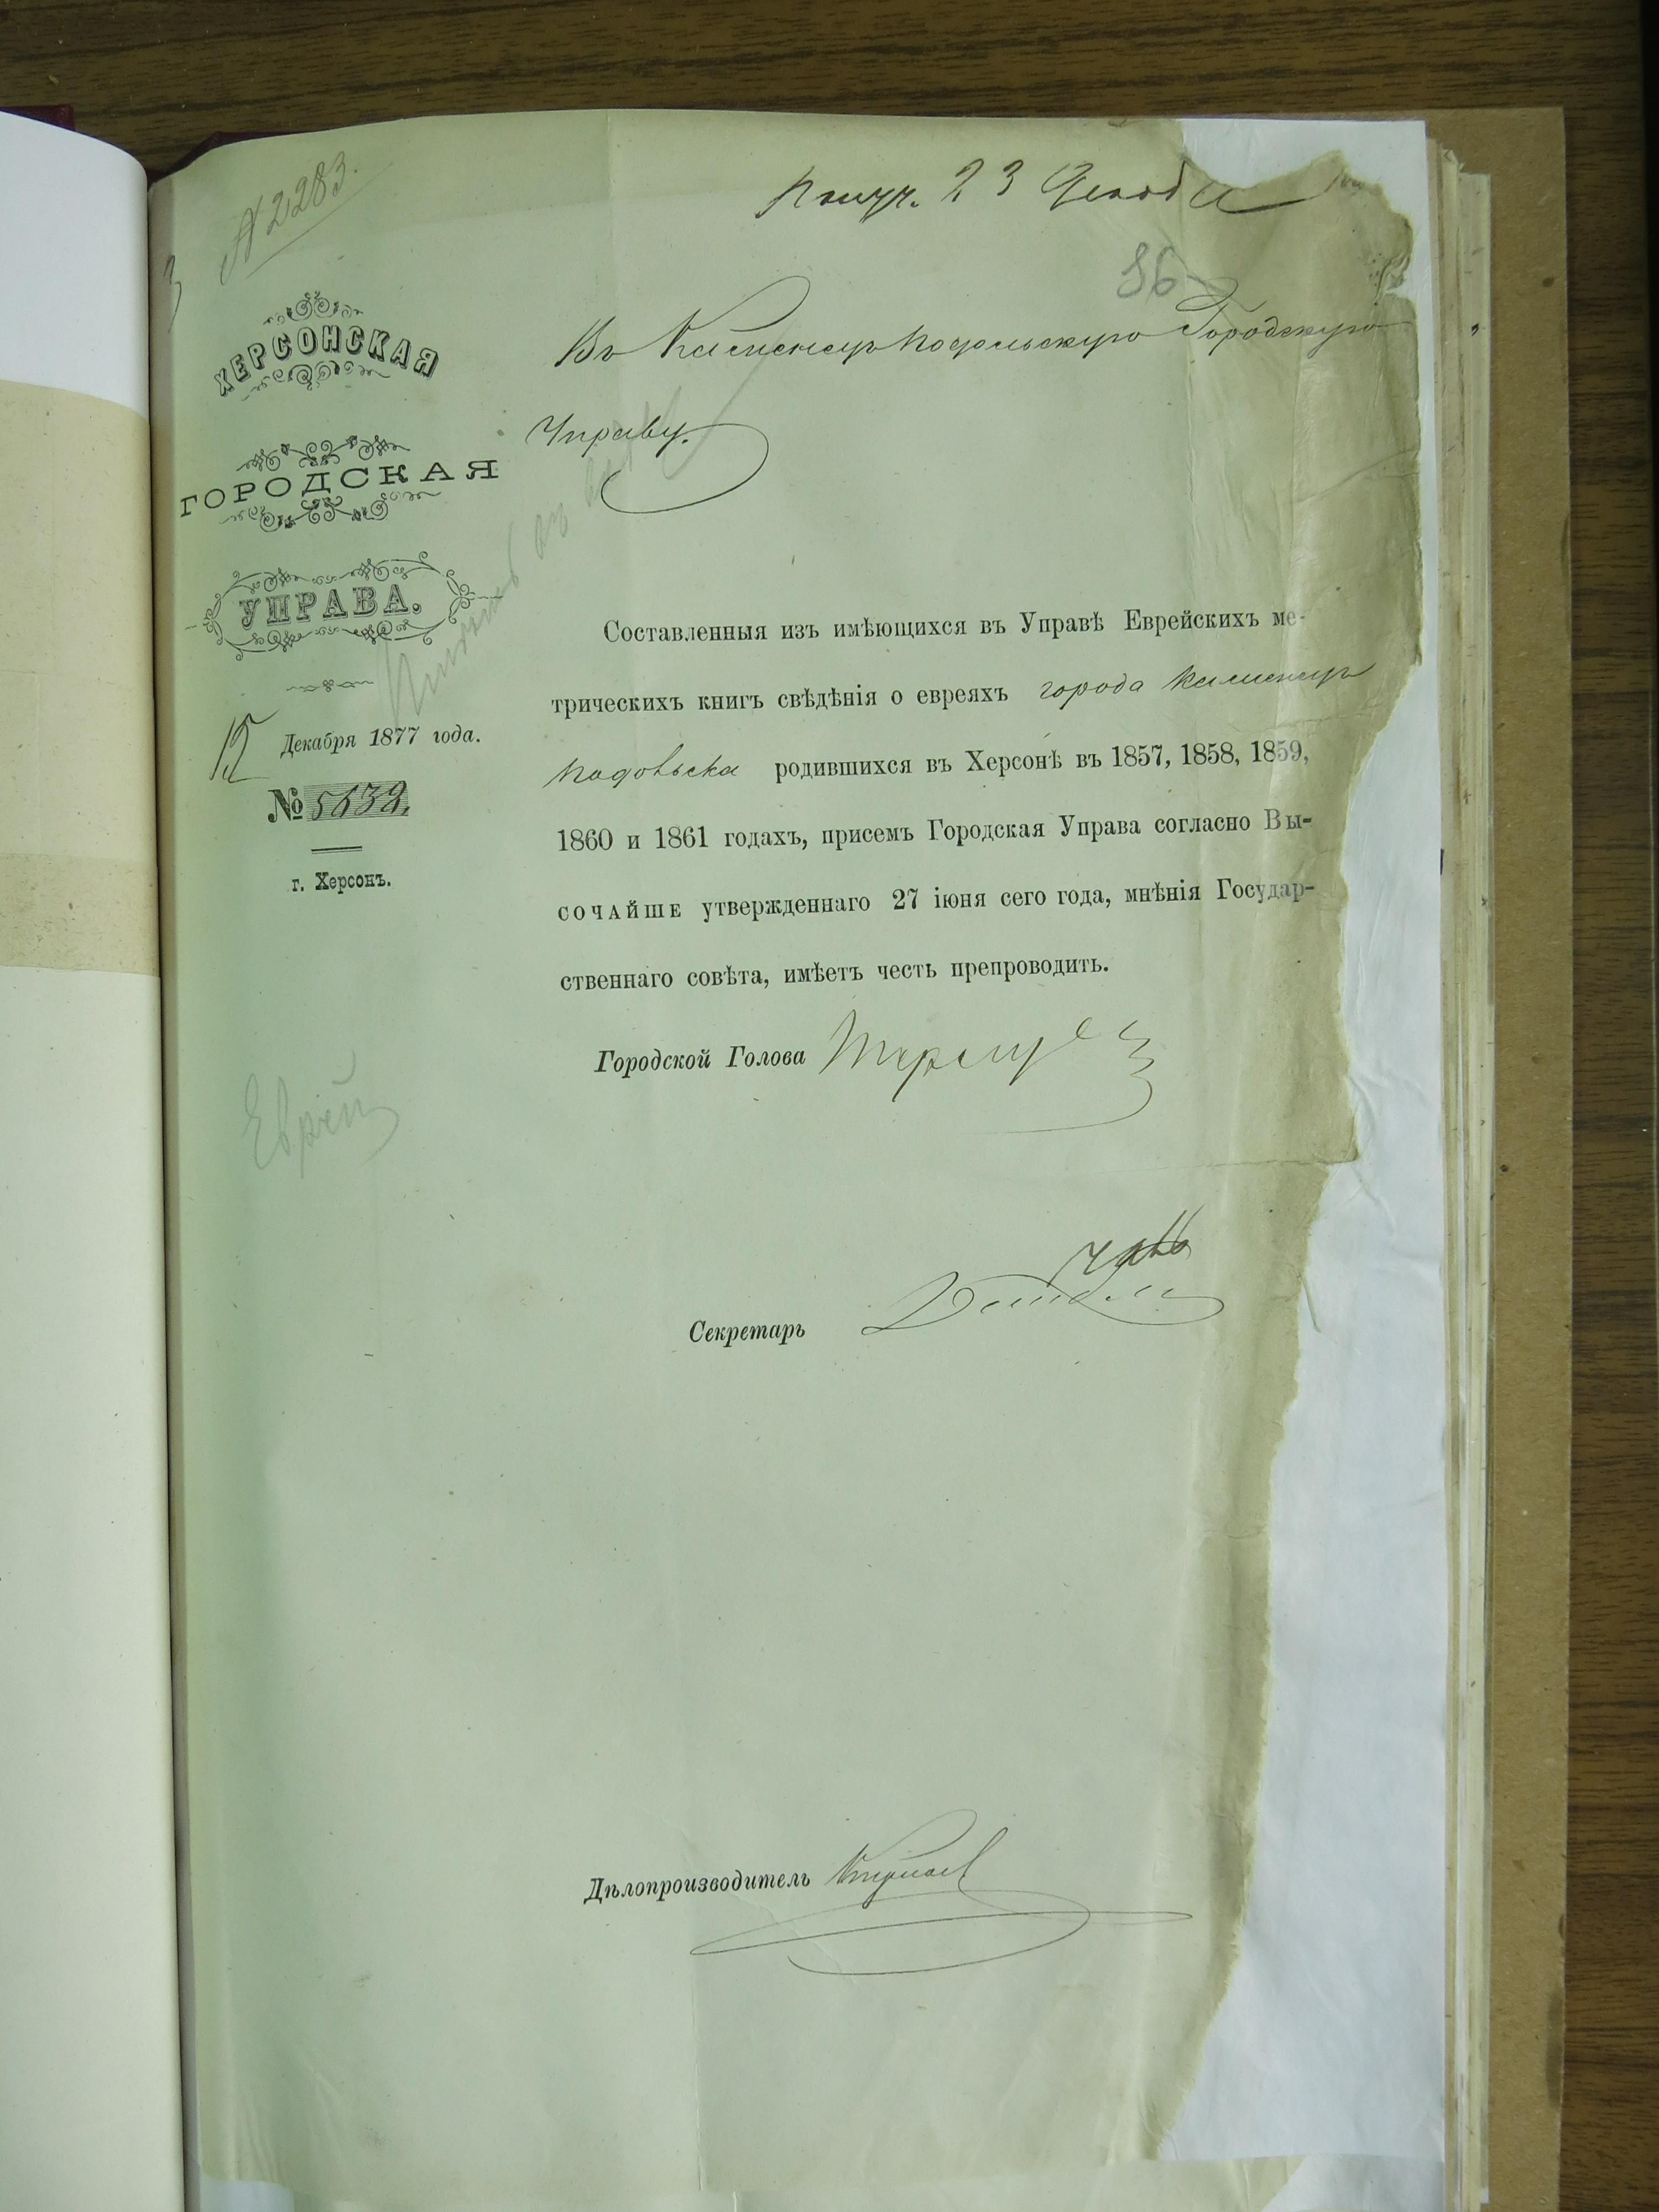 № 2283.
Получ. 23 Декаб
86
ХЕРСОНСКАЯ
ГОРОДСКАЯ
УПРАВА.
12 Декабря 1877 года.
№ 5632.
г. Херсонъ.
Въ Каменецъ Подольскую Городскую
Управу.
Составленныя изъ имѣющихся въ Управѣ Еврейскихъ ме-
трическихъ книгъ свѣдѣнія о евреяхъ города Каменецъ
Подольска родившихся въ Херсонѣ въ 1857, 1858, 1859,
1860 и 1861 годахъ, присемъ Городская Управа согласно Вы-
СОЧАЙШЕ утвержденнаго 27 іюня сего года, мнѣнія Государ-
ственнаго совѣта, имѣетъ честь препроводить.
Городской Голова
Еврей
Секретарь
Дѣлопроизводитель